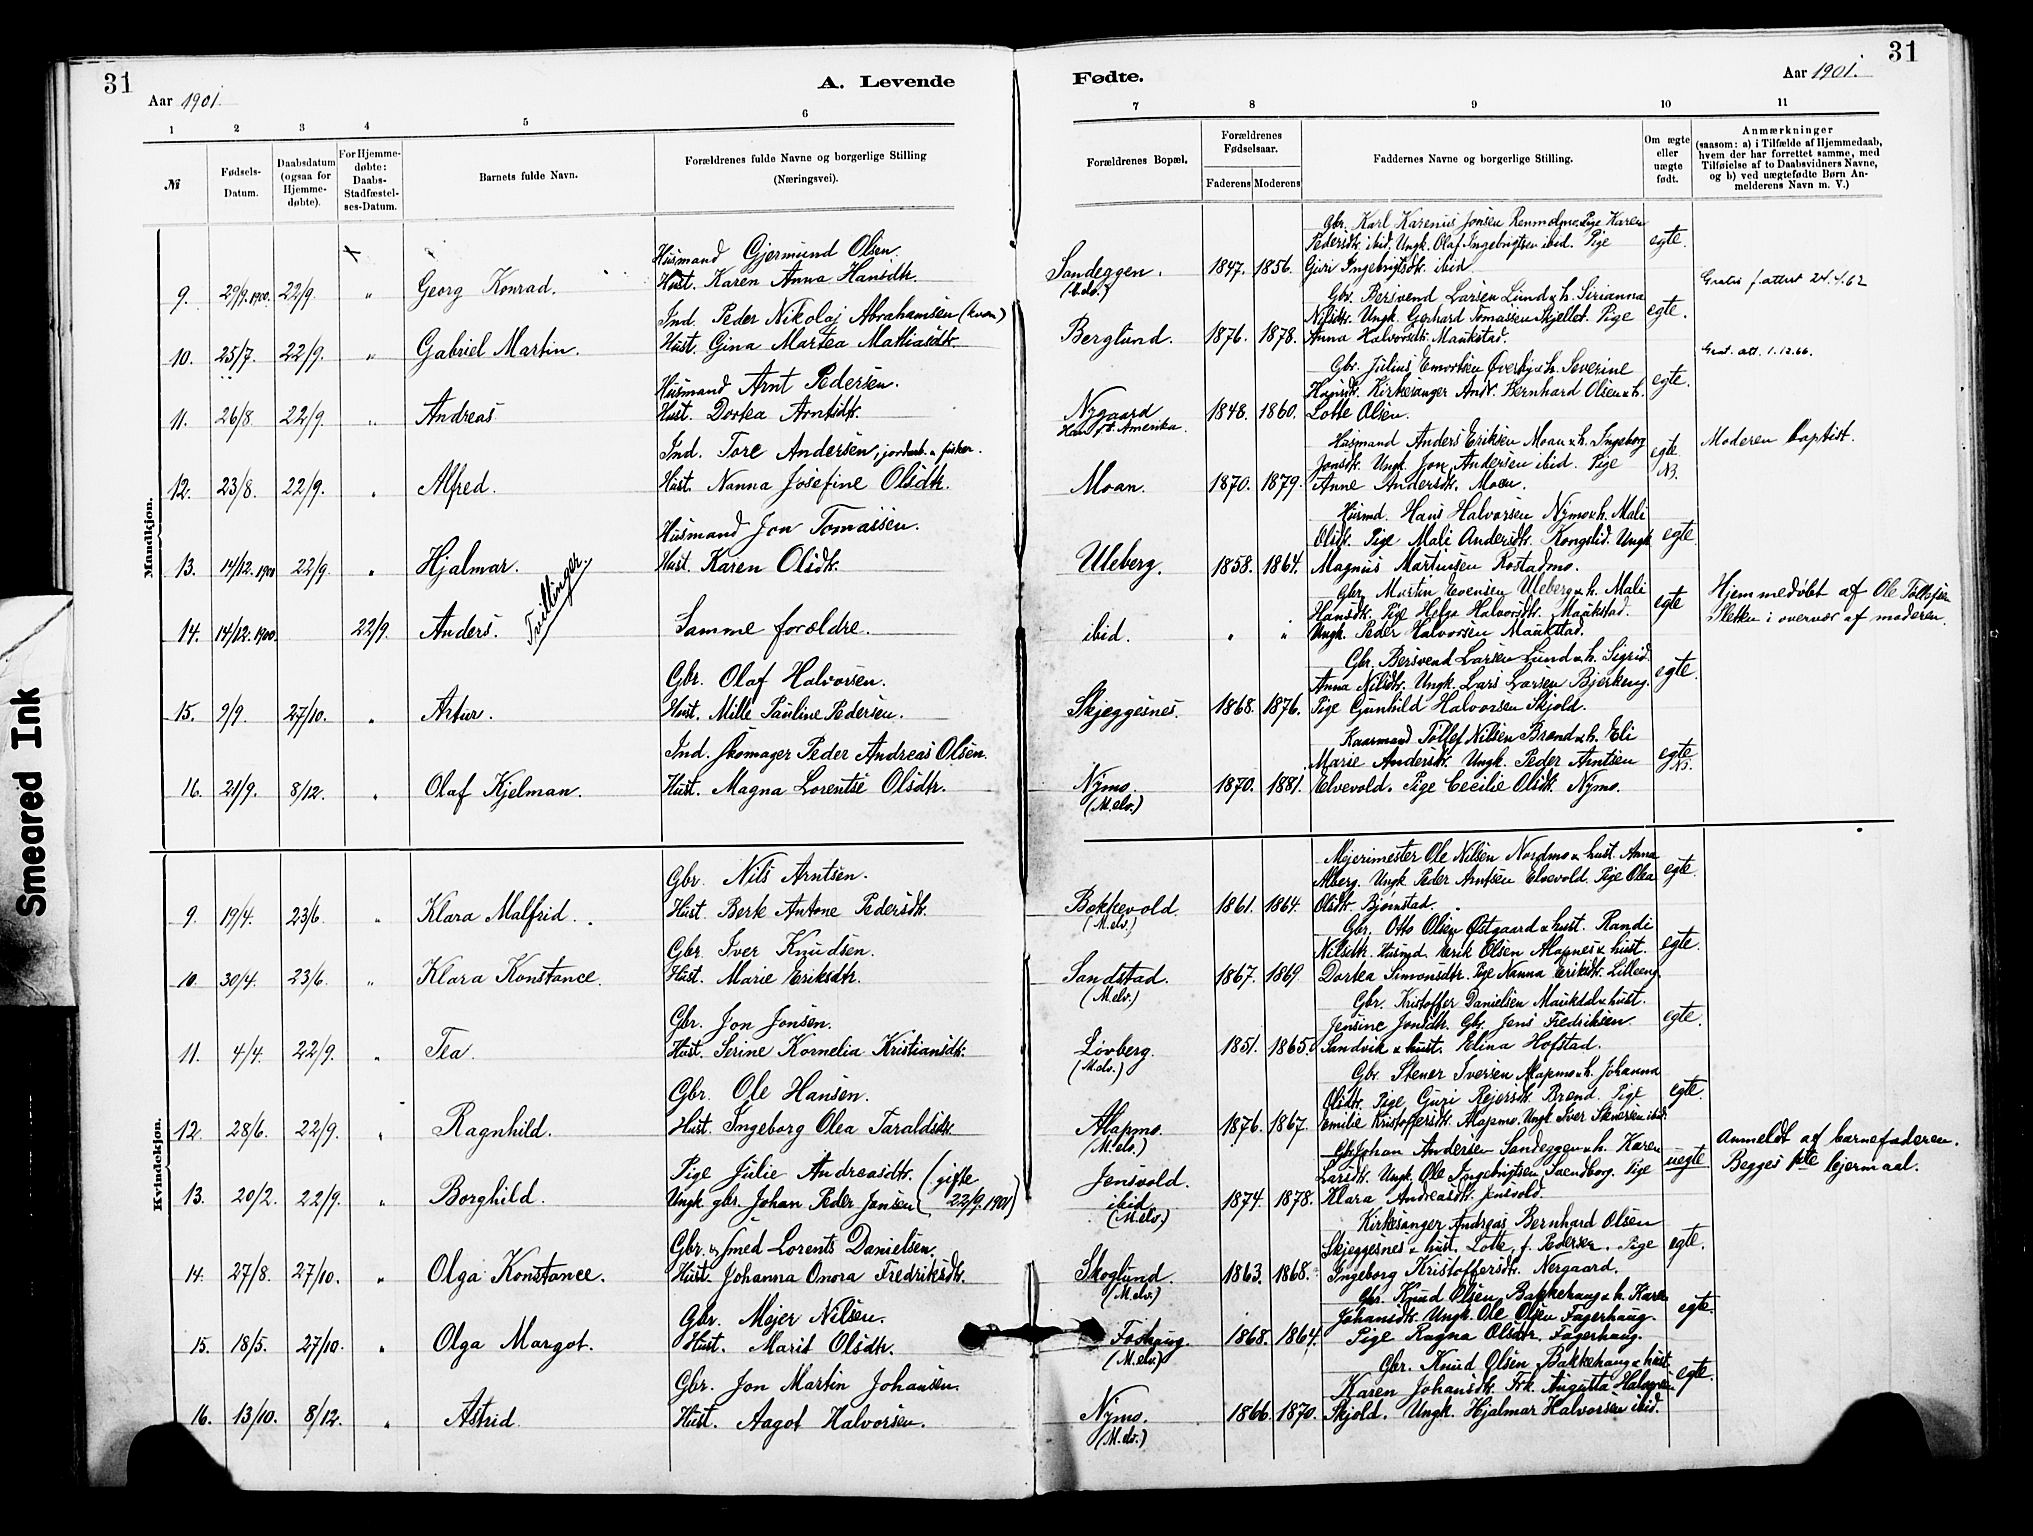 31
Aar 1901.
A. Levende
Fødte.
Aar 1901.
31
1 2 3 4 5 6 7 8 9 10 11
№
Fødsels-Datum.
Daabsdatum (ogsaa for Hjemme-døbte).
For Hjemme-døbte: Daabs-Stadfæstel-ses-Datum.
Barnets fulde Navn.
Forældrenes fulde Navne og borgerlige Stilling (Næringsvei).
Forældrenes Bopæl.
Forældrenes Fødselsaar.
Faderens Moderens
Faddernes Navne og borgerlige Stilling.
Om ægte eller uægte født.
Anmærkninger
(saasom: a) i Tilfælde af Hjemmedaab, hvem der har forrettet samme, med Tilføielse af to Daabsvidners Navne, og b) ved uægtefødte Børn Anmelderens Navn m. V.)
Mandkjøn.
9. 29/9.1900. 22/9. " Georg Konrad.
Husmand Gjermund Olsen.
Hust. Karen Anna Hansdtr.
Sandeggen. (M.elv.) 1847. 1856.
Gbr. Karl Karenius Jonsen Renmolmo. Pige Karen
Pedersdtr. ibid. Ungk. Olaf Ingebrigtsen ibid. Pige
Guri Ingebrigtsdtr. ibid
egte.
Gratis f.attest 24.4.62
10. 25/7. 22/9. " Gabriel Martin.
Ind. Peder Nikolaj Abrahamsen (kvæn)
Hust. Gina Martea Mattiasdtr.
Berglund. 1876. 1878.
Gbr. Bersvend Larsen Lund & h. Sirianna
Nilsdtr. Ungk. Gerhard Tomassen Skjellet. Pige
Anna Halvorsdtr. Maukstad.
egte.
Grat. att. 1.12.66.
11. 26/8. 22/9. " Andreas
Husmand Arnt Pedersen.
Hust. Dortea Arntsdtr.
Nygaard 1848. 1860.
Gbr. Julius Emortsen Øverby & h. Severine
Hansdtr. Kirkesanger Andr. Bernhard Olsen & h.
Lotte Olsen.
egte.
12. 23/8. 22/9. " Alfred.
Ind. Tore Andersen, jordarb. & fisker.
Hust. Nanna Josefine Olsdtr.
Moan. 1870. 1879.
Husmand Anders Eriksen Moan & h. Ingeborg
Jonsdtr. Ungk. Jon Andersen ibid. Pige
Anne Andersdtr. Moen.
egte
Moderen baptist.
13. 14/12.1900 22/9. " Hjalmar.
Husmand Jon Tomassen.
Hust. Karen Olsdtr.
Uleberg. 1858. 1864.
Husmd. Hans Halvorsen Nymo & h. Mali
Olsdtr. Pige Mali Andersdtr. Kongslid. Ungk
Magnus Martinsen Rostadmo.
egte.
Tvillinger.
14. 14/12.1900. 22/9. Anders.
Samme forældre.
ibid. " "
Gbr. Martin Evensen Uleberg & h. Mali
Hansdtr. Pige Helga Halvorsdtr. Maukstad.
Ungk. Peder Halvorsen Maukstad.
egte
Hjemmedøbt af Ole Tollefsen
Sletten i overvær af moderen.
15. 9/9. 27/10. " Artur.
Gbr. Olaf Halvorsen.
Hust. Mille Pauline Pedersen.
Skjeggesnes. 1868. 1876.
Gbr. Bersvend Larsen Lund & h. Sigrid
Anna Nilsdtr. Ungk. Lars Larsen Bjerkeng.
Pige Gunhild Halvorsen Skjold.
egte.
16. 21/9. 8/12. " Olaf Kjelman.
Ind. Skomager Peder Andreas Olsen.
Hust. Magna Lorentse Olsdtr.
Nymo. (M.elv.) 1870. 1881.
Kaarmand Tollef Nilsen Brend & h. Eli
Marie Andersdtr. Ungk. Peder Arntsen
Elvevold. Pige Cecilie Olsdtr. Nymo.
egte
Kvindekjøn.
9. 19/4. 23/6. " Klara Malfrid.
Gbr. Nils Arntsen.
Hust. Berk Antone Pedersdtr.
Bakkevold. (M.elv.) 1861. 1864.
Mejerimester Ole Nilsen Nordmo & hust. Anna
Moberg. Ungk Peder Arntsen Elvevold. Pige Olea
Olsdtr. Bjørnstad.
egte.
10. 30/4. 23/6. " Klara Konstance.
Gbr. Iver Knudsen.
Hust. Marie Eriksdtr.
Sandstad. (M.elv.) 1867. 1869
Gbr. Otto Olsen Østgaard & hust. Randi
Nilsdtr. Husmd. Erik Olsen Alapnes & hust.
Dortea Simonsdtr. Pige Nanna Eriksdtr. Lilleeng
egte.
11. 4/4. 22/9. " Tea.
Gbr. Jon Jonsen.
Hust. Serine Kornelia Kristiansdtr.
Løvberg. (M.elv.) 1851. 1865.
Gbr. Kristoffer Danielsen Maukdal & hust.
Jensine Jonsdtr. Gbr. Jens Fredriksen
Sandvik & hust. Elina Hofstad.
egte.
12. 28/6. 22/9. " Ragnhild.
Gbr. Ole Hansen.
Hust. Ingeborg Olea Taraldsdtr.
Alapmo. (M.elv.) 1876. 1867.
Gbr. Stener Iversen Alapmo & h. Johanna
Olsdtr. Pige Guri Rejersdtr. Brend. Pige
Emilie Kristoffersdtr. Alapmo. Ungk Iver Stenersen ibid.
egte.
13. 20/2. 22/9. " Borghild.
Pige Julie Andreasdtr.
Ungk. gbr. Johan Peder Jonsen (gifte 22/9.1901)
Jensvold.
ibid (M.elv.) 1874. 1878.
Gbr. Johan Andersen Sandeggen & h. Karen
Larsdtr. Ungk. Ole Ingebrigtsen Svendborg. Pige
Klara Andreasdtr. Jensvold.
uegte
Anmeldt af barnefaderen.
Begges 1ste lejermaal.
14. 27/8. 27/10. " Olga Konstance.
Gbr. & smed Lorents Danielsen.
Hust. Johanna Onora Fredriksdtr.
Skoglund. (M.elv.) 1863. 1868.
Kirkesanger Andreas Bernhard Olsen
Skjeggesnes & hust. Lotte f. Pedersen. Pige
Ingeborg Kristoffersdtr. Nergaard.
egte.
15. 18/5. 27/10. " Olga Margot.
Gbr. Mejer Nilsen.
Hust. Marit Olsdtr.
Foshaug. (M.elv.) 1868. 1864.
Gbr. Knud Olsen Bakkehaug & h. Karen
Johansdtr. Ungk. Ole Olsen Fagerhaug.
Pige Ragna Olsdtr. Fagerhaug.
egte.
16. 13/10. 8/12. " Astrid.
Gbr. Jon Martin Johansen.
Hust. Aagot Halvorsen.
Nymo. (M.elv.) 1866. 1870.
Gbr. Knud Olsen Bakkehaug & hust
Karen Johansdtr. Frk. Augusta Halvorsen
Skjold. Ungk. Hjalmar Halvorsen ibid.
egte.
Smeared Ink